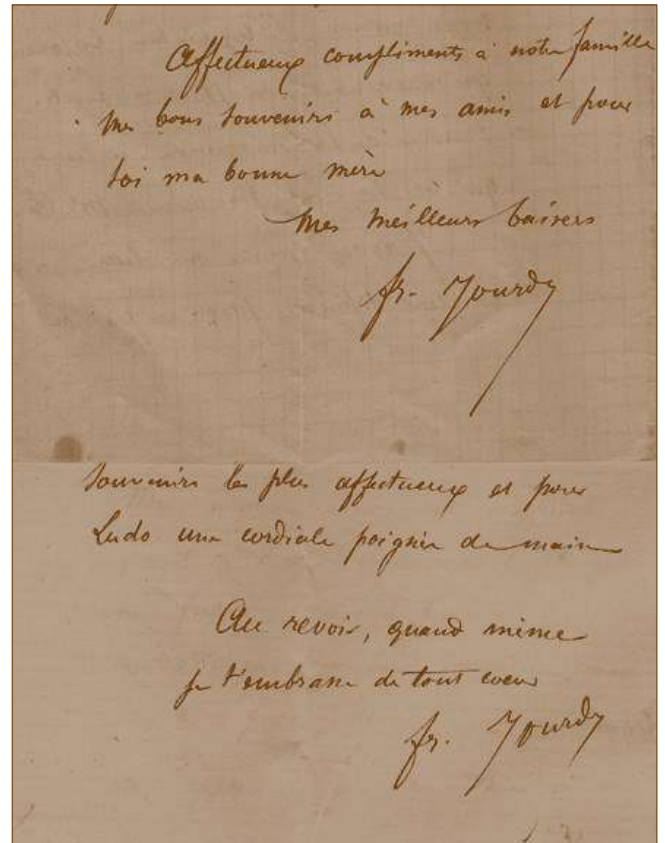 Affectueux compliments à notre famille
Mes bons souvenirs à mes amis et pour
toi ma bonne mère
Mes meilleurs baisers
fr. Jourdy
Souvenirs les plus affectueux et pour
Ludo une cordiale poignée de main
Au revoir, quand même
je t'embrasse de tout coeur
fr. Jourdy